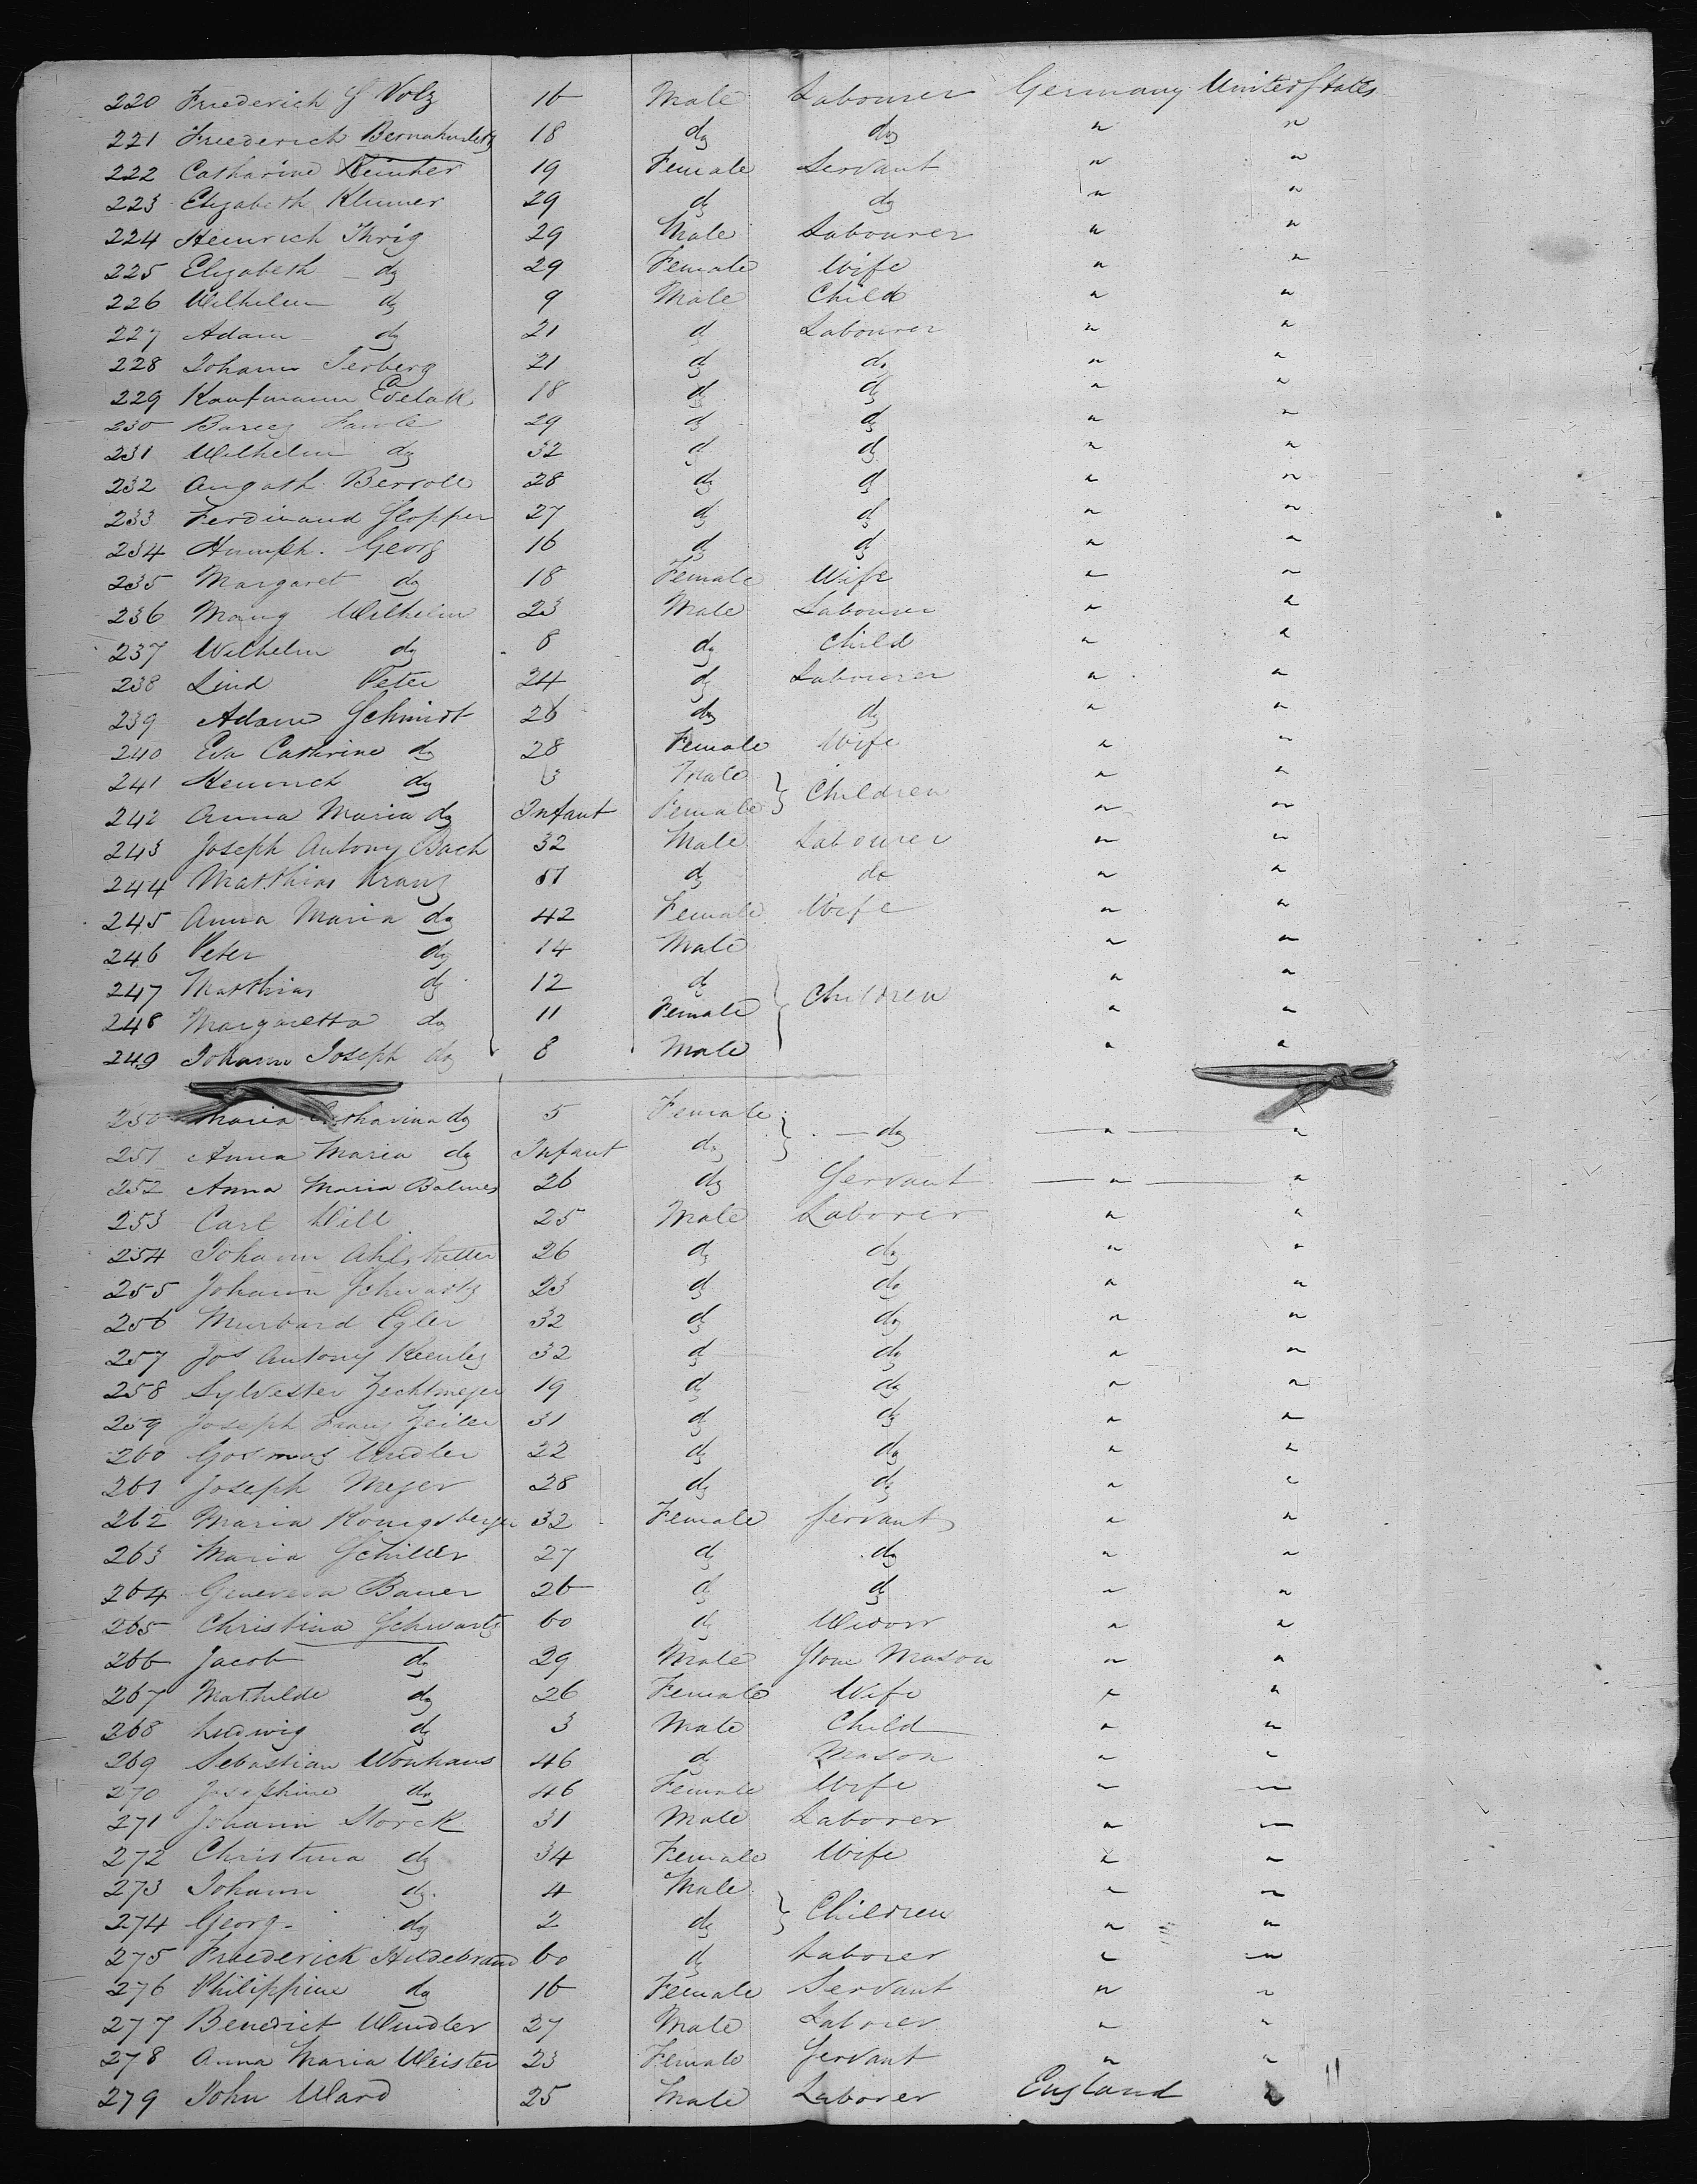 220 Friederich G Volz 16 Male Labourer Germany United States
221 Friederich 18 do do " "
222 Catharine 19 Female Servant " "
223 Elizabeth Klumer 29 do do " "
224 Heinrich Ihrig 29 Male Labourer " "
225 Elizabeth do 29 Female Wife " "
226 Wilhelm do 9 Male Child " "
227 Adam do 21 do Labourer " "
228 Johann 21 do do " "
229 Kaufmann 18 do do " "
230 29 do do " "
231 Wilhelm do 32 do do " "
232 August 28 do do " "
233 Ferdinand 27 do do " "
234 Humph. Georg 16 do do " "
235 Margaret do 18 Female Wife " "
236 Mang Wilhelm 23 Male Labourer " "
237 Wilhelm do 8 do Child " "
238 Lind Peter 24 do Labourer " "
239 Adam Schmidt 26 do do " "
240 Eva Cathrine do 28 Female Wife " "
241 Heinrich do 3 Male } Children " "
242 Anna Maria do Infant Female " "
243 Joseph Antony Bach 32 Male Labourer " "
244 Matthias Kranz 51 do do " "
245 Anna Maria do 42 Female Wife " "
246 Peter do 14 Male " "
247 Matthias do 12 do } Children " "
248 Margaretta do 11 Female " "
249 Johann Joseph do 8 Male " "
250 Maria Catharina do 5 Female } do " "
251 Anna Maria do Infant do
252 Anna Maria Balmes 26 do Servant " "
253 Carl Will 25 Male Laborer " "
254 Johann 26 do do " "
255 Johann Schwartz 23 do do " "
256 Egler 32 do do " "
257 Jos Antony 32 do do " "
258 Sylvester Zechtmeyer 19 do do " "
259 Joseph Franz Zeiler 31 do do " "
260 22 do do " "
261 Joseph Meyer 28 do do " "
262 Maria Konigsberger 32 Female Servant " "
263 Maria Schiller 27 do do " "
264 Geneveva Bauer 26 do do " "
265 Christina Schwartz 60 do Widow " "
266 Jacob do 29 Male Stone Mason " "
267 Mathilde do 26 Female Wife " "
268 Ludwig do 3 Male Child " "
269 Sebastian Wonhaus 46 do Mason " "
270 Josephine do 46 Female Wife " "
271 Johann Storck 31 Male Laborer " "
272 Christina do 34 Female Wife " "
273 Johann do. 4 Male } Children " "
274 Georg. do 2 do " "
275 Friederick Hildebrand 60 do Laborer " "
276 Philippine do 16 Female Servant " "
277 Benedict Windler 27 Male Laborer " "
278 Anna Maria Weister 23 Female Servant " "
279 John Ward 25 Male Laborer England "